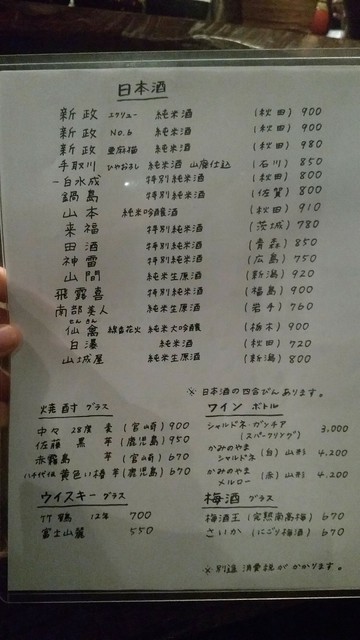 日本酒
新政 エクリュー 純米酒 (秋田) 900
新政 No.6 純米酒 (秋田) 900
新政 亜麻猫 純米酒 (秋田) 980
手取川 ひやおろし 純米酒 山廃仕込 (石川) 850
一白水成 特別純米酒 (秋田) 800
鍋島 特別純米酒 (佐賀) 800
山本 純米吟醸酒 (秋田) 910
来福 特別純米酒 (茨城) 780
田酒 特別純米酒 (青森) 850
神雷 特別純米酒 (広島) 750
山間 純米生原酒 (新潟) 920
飛露喜 特別純米酒 (福島) 900
南部美人 純米生原酒 (岩手) 760
仙禽 線香花火 純米大吟醸 (栃木) 900
白瀑 純米酒 (秋田) 720
山城屋 純米生原酒 (新潟) 800
※日本酒の四合びんあります。
焼酎 グラス
中々 28度 麦 (宮崎) 900
佐藤 黒 芋 (鹿児島) 950
赤霧島 芋 (宮崎) 670
八千代伝 黄色い椿 芋 (鹿児島) 670
ウイスキー グラス
竹鶴 12年 700
富士山麓 550
ワイン ボトル
シャルドネ・ガンチア
(スパークリング) 3,000
かみのやま
シャルドネ (白) 山形 4,200
かみのやま
メルロー (赤) 山形 4,200
梅酒 グラス
梅酒王 (完熟南高梅) 670
さいか (にごり梅酒) 670
※別途 消費税がかかります。